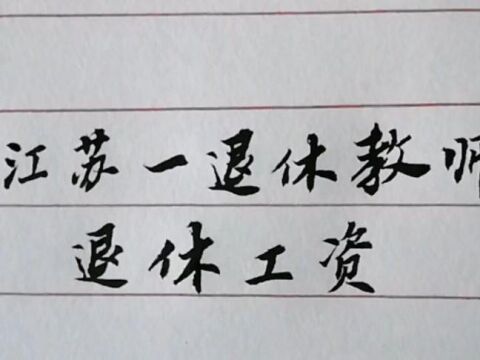 江苏一退休教师
退休工资